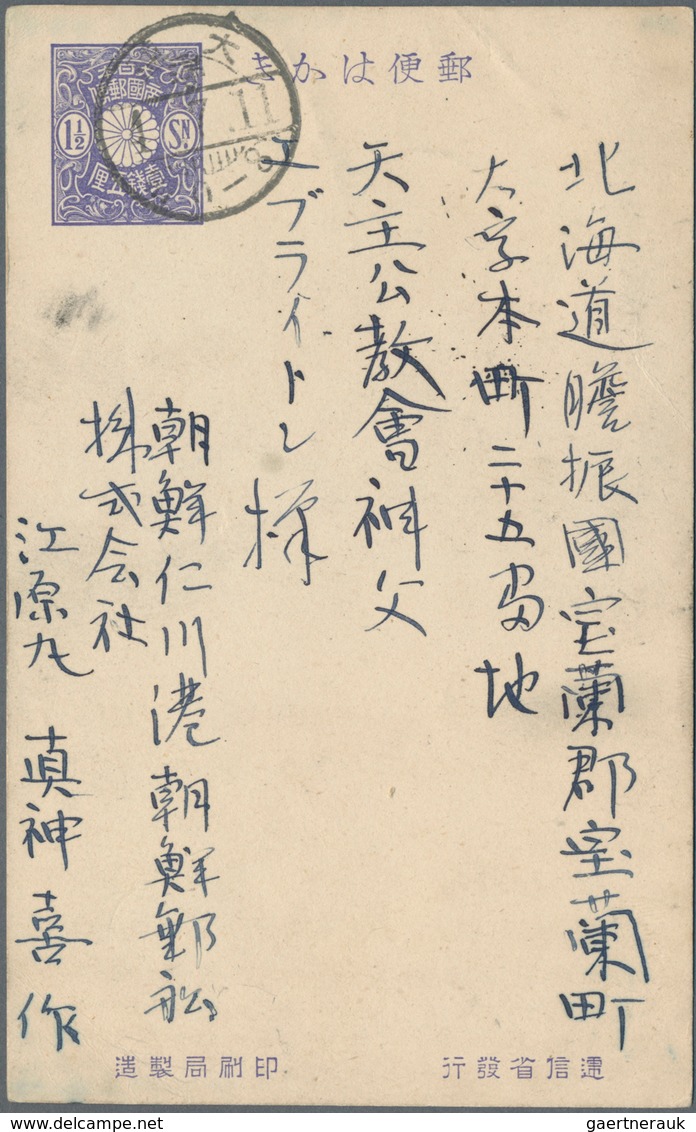 郵便はかき
大日本
帝國郵便
1½
SN
壹錢五厘
北海道膽振國室蘭郡室蘭町
大字本町二十五番地
天主公教會神父
エブライトン様
朝鮮仁川港朝鮮郵船
株式会社
江原丸 真神喜作
遞信省發行
印刷局製造
gaertnerauk